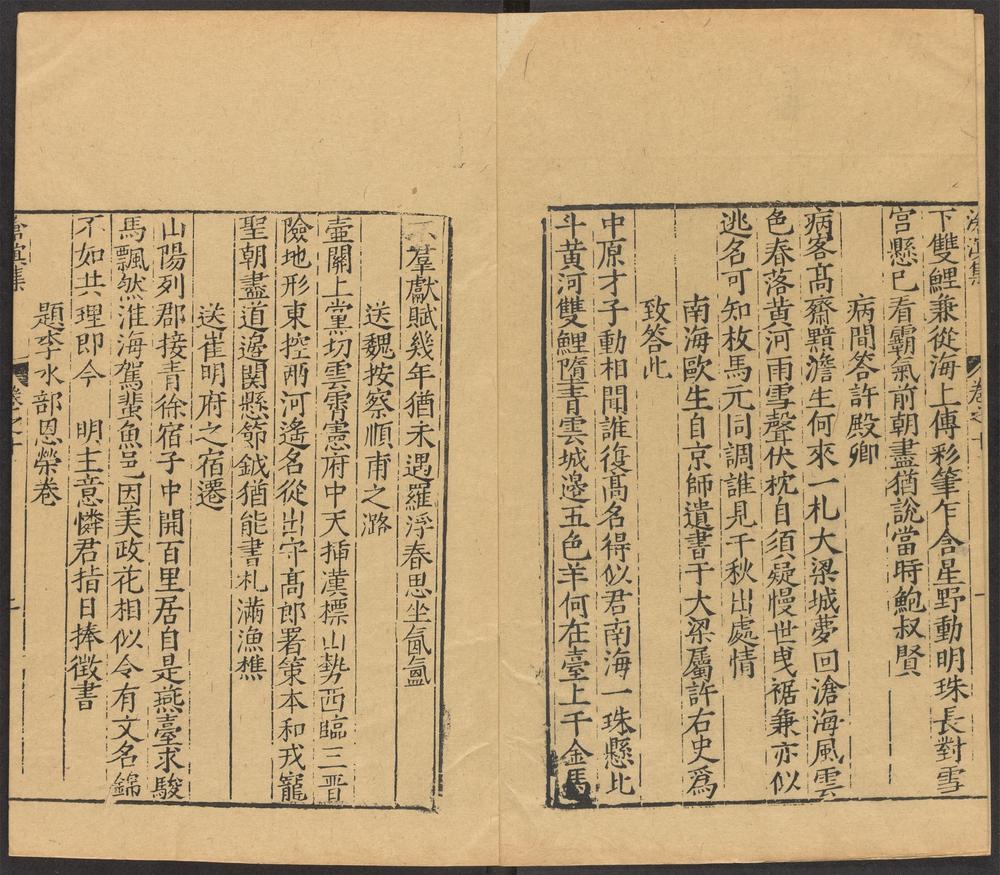 滄溟集 卷之十 一
下雙鯉兼從海上傳彩筆乍含星野動明珠長對雪
宮懸已看霸氣前朝盡猶說當時鮑叔賢
病間答許殿卿
病客高齋黯澹生何來一札大梁城夢回滄海風雲
色春落黃河雨雪聲伏枕自須疑慢世曳裾兼亦似
逃名可知枚馬元同調誰見千秋出處情
南海歐生自京師遺書于大梁屬許右史爲
致答此
中原才子動相聞誰復高名得似君南海一珠懸北
斗黃河雙鯉隋青雲城邊五色羊何在臺上千金馬
羣獻賦幾年猶未遇羅浮春思坐氤氳
送魏按察順甫之潞
壷關上黨切雲霄憲府中天揷漢標山勢西臨三晋
險地形東控兩河遙名從出守高郎署策本和戎寵
聖朝盡道邊関懸節鉞猶能書札滿漁樵
送崔明府之宿遷
山陽列郡接青徐宿子中開百里居自是燕臺求駿
馬飄然淮海駕蜚魚邑因美政花相似令有文名錦
不如共理即今 明主意憐君指日捧徵書
題李水部恩榮卷
滄溟集 卷之十